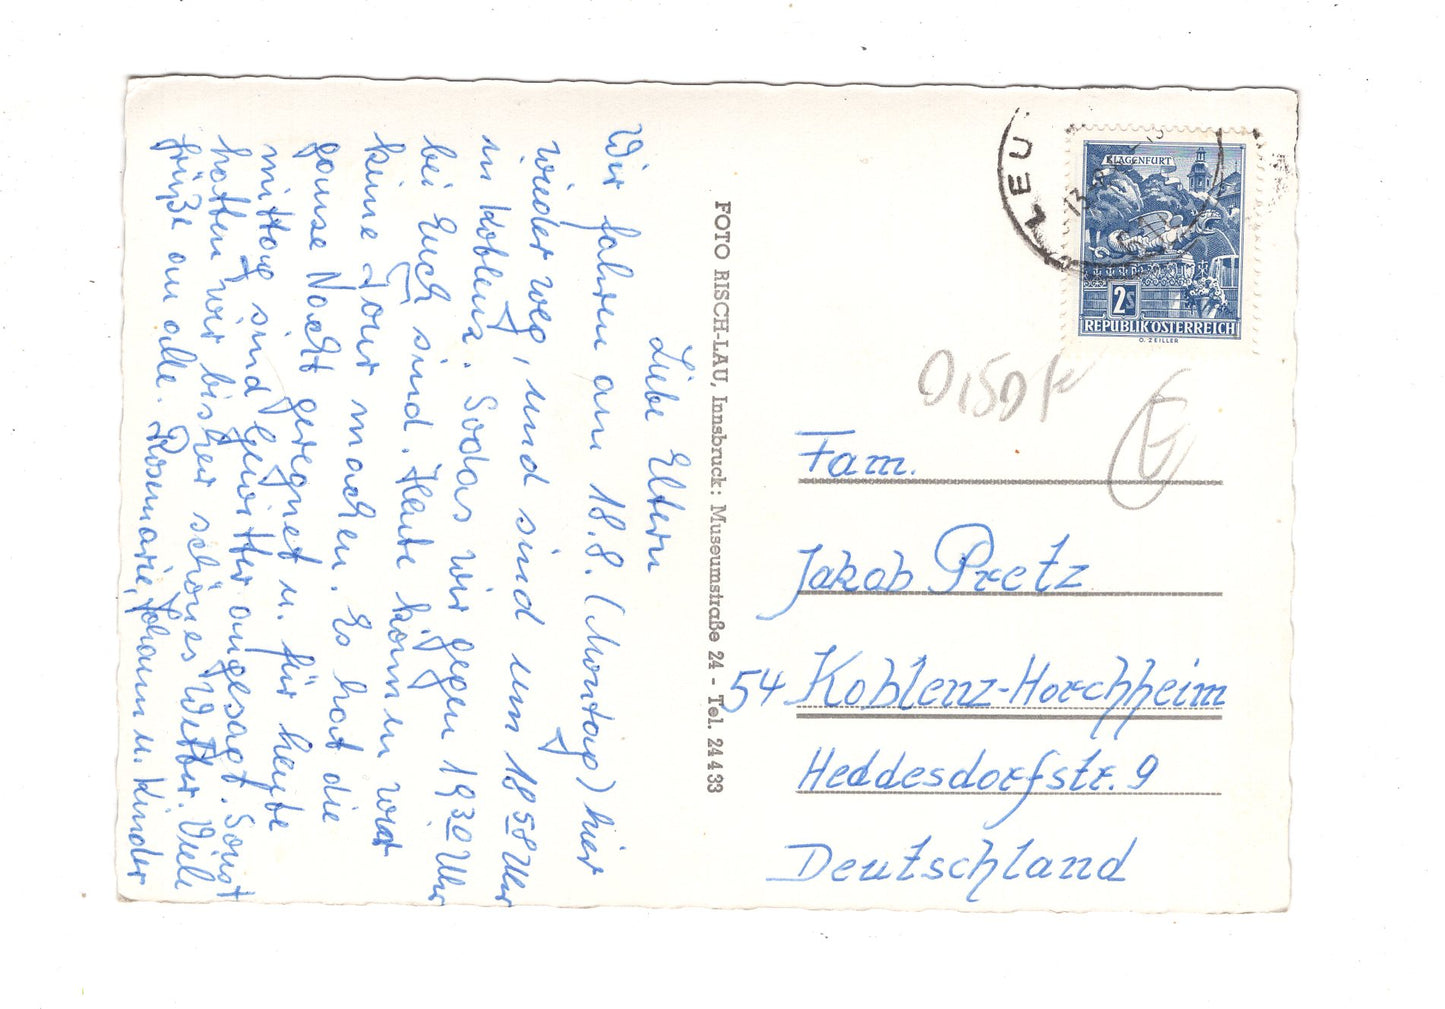 Liebe Eltern
Wir fahren am 18.8. (Montag) hier
wieder weg, und sind um 18 58 Uhr
in Koblenz. Sodas wir gegen 19 30 Uhr
bei Euch sind. Heute können wir
keine Tour machen. Es hat die
ganse Nacht geregnet u. für heute
mittag sind Gewitter angesagt. Sonst
hatten wir bisher schönes Wetter. Viele
Grüße an alle. Rosmarie, Johann u. Kinder
FOTO RISCH-LAU, Innsbruck: Museumstraße 24 - Tel. 24 4 33
LEU
KLAGENFURT
2s
REPUBLIK ÖSTERREICH
O. ZEILLER
Fam.
Jakob Pretz
54 Koblenz-Horchheim
Heddesdorfstr. 9
Deutschland